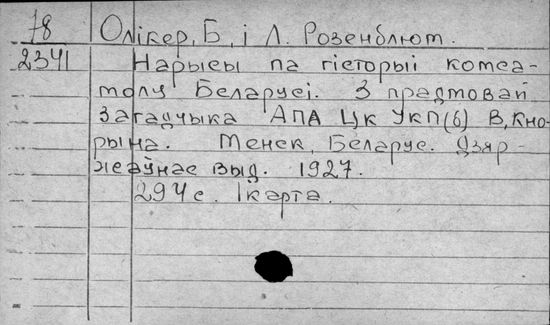 78 Олікер, Б, і Л. Розенблют.
2341 Нарысы па гісторыі комса-
молу Беларусі. З прадмовай
загадчыка АПА ЦК УКП(б) В. Кно-
рына. Менск, Беларус. Дзяр-
жаўнае выд. 1927.
294 с. 1 карта.